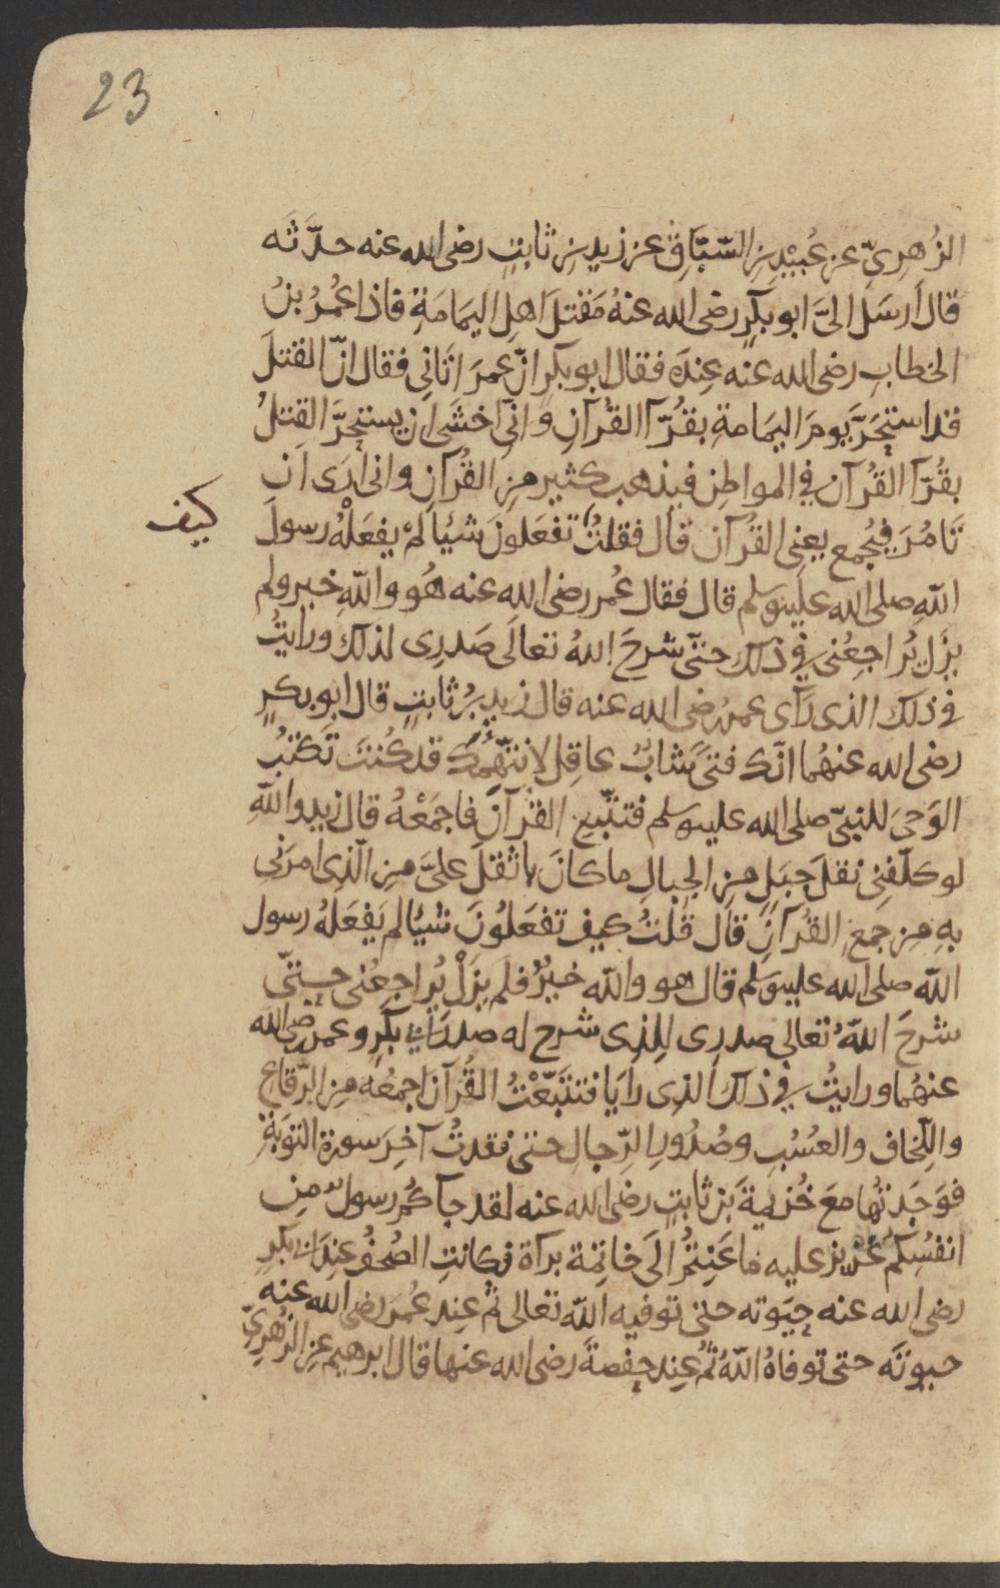 23
الزُهرِيّ عن عُبَيْدِ بنِ السّبَّاقِ عن زيدِ بنِ ثابتٍ رضى الله عنه حدَّثَه
قال أَرسَل الىَّ ابو بكرٍ رضى الله عنهُ مَقتلَ اهلِ اليمَامَةِ فاذا عُمَرُ بنُ
الخطابِ رضى الله عنه عِندَه فقال ابو بكرٍ انّ عمرَ اتَانِى فقال انّ القتلَ
قد استَحَرَّ يومَ اليمَامةِ بقُرّآ القُرآنِ وَانّى اخشَى ان يستحِرَّ القتلُ
بقُرّآ القُرآن فى المواطِنِ فيذهب كثير مِن القُرآنِ وانى أرَى ان
تَامُرَ فيُجمع يعنِى القُرآن قال فقلتُ تفعَلونَ شيْأ لَمْ يفعَلْهُ رسولُ
كيف
اللّهِ صلى الله عليه وسلم قال فقال عُمر رضى الله عنه هُو واللّهِ خير ولم
يزَل يُراجِعُنى فى ذلك حتّى شرحَ اللهُ تعالَى صَدرِى لذلك ورايتُ
فى ذلك الذى رَأى عمرُ رضى الله عنه قال زيد بنُ ثابتٍ قال ابو بكرٍ
رضى الله عنهُما انّك فتىً شَابّ عاقِل لانتّهِمُك قد كُنتَ تَكتُبُ
الوَحىَ للنبىّ صلى الله عليه وسلم فتتبّع القُرآن فاجمَعْهُ قال زيد واللّهِ
لو كلّفنِى نقلَ جبَلٍ مِن الجبالِ ما كانَ باثقلَ علىَّ مِن الّذِى امرَنى
بهِ مِن جَمعِ القُرآنِ قال قلتُ كيف تفعَلُونَ شيْأ لم يَفعَلهُ رسول
اللّه صلى الله عليه وسلم قال هو واللّه خيرٌ فلَم يزَلْ يُراجعُنى حتّى
شرحَ اللّهُ تعالى صدرِى لِلذِى شرح له صدر ابى بكرٍ وعمر رضى الله
عنهُما ورايتُ فى ذلك الذِى رأيَا فتتَبّعْتُ القُرآن اجمعُه مِن الرّقاعِ
واللِّخاف والعُسُبِ وصُدُورِ الرّجالِ حتى فقدتُ آخِرَ سورة التوبَةِ
فوَجَدتُها معَ خُزيمةَ بن ثابتٍ رضى الله عنه لقد جآكُم رسولٌ مِن
انفُسِكُم عزيز عليه ما عَنِتُّم الَى خاتِمة برآة فكانتِ الصُحفُ عِندَ ابى بكرٍ
رضى الله عنه حيَوته حتى توفيه اللّه تعالى ثم عِند عُمَر رضى الله عنه
حيوتَه حتى توفاهُ اللّهُ ثُمّ عِند حفصةَ رضى الله عنها قال ابرهيم عن الزُهرِىّ